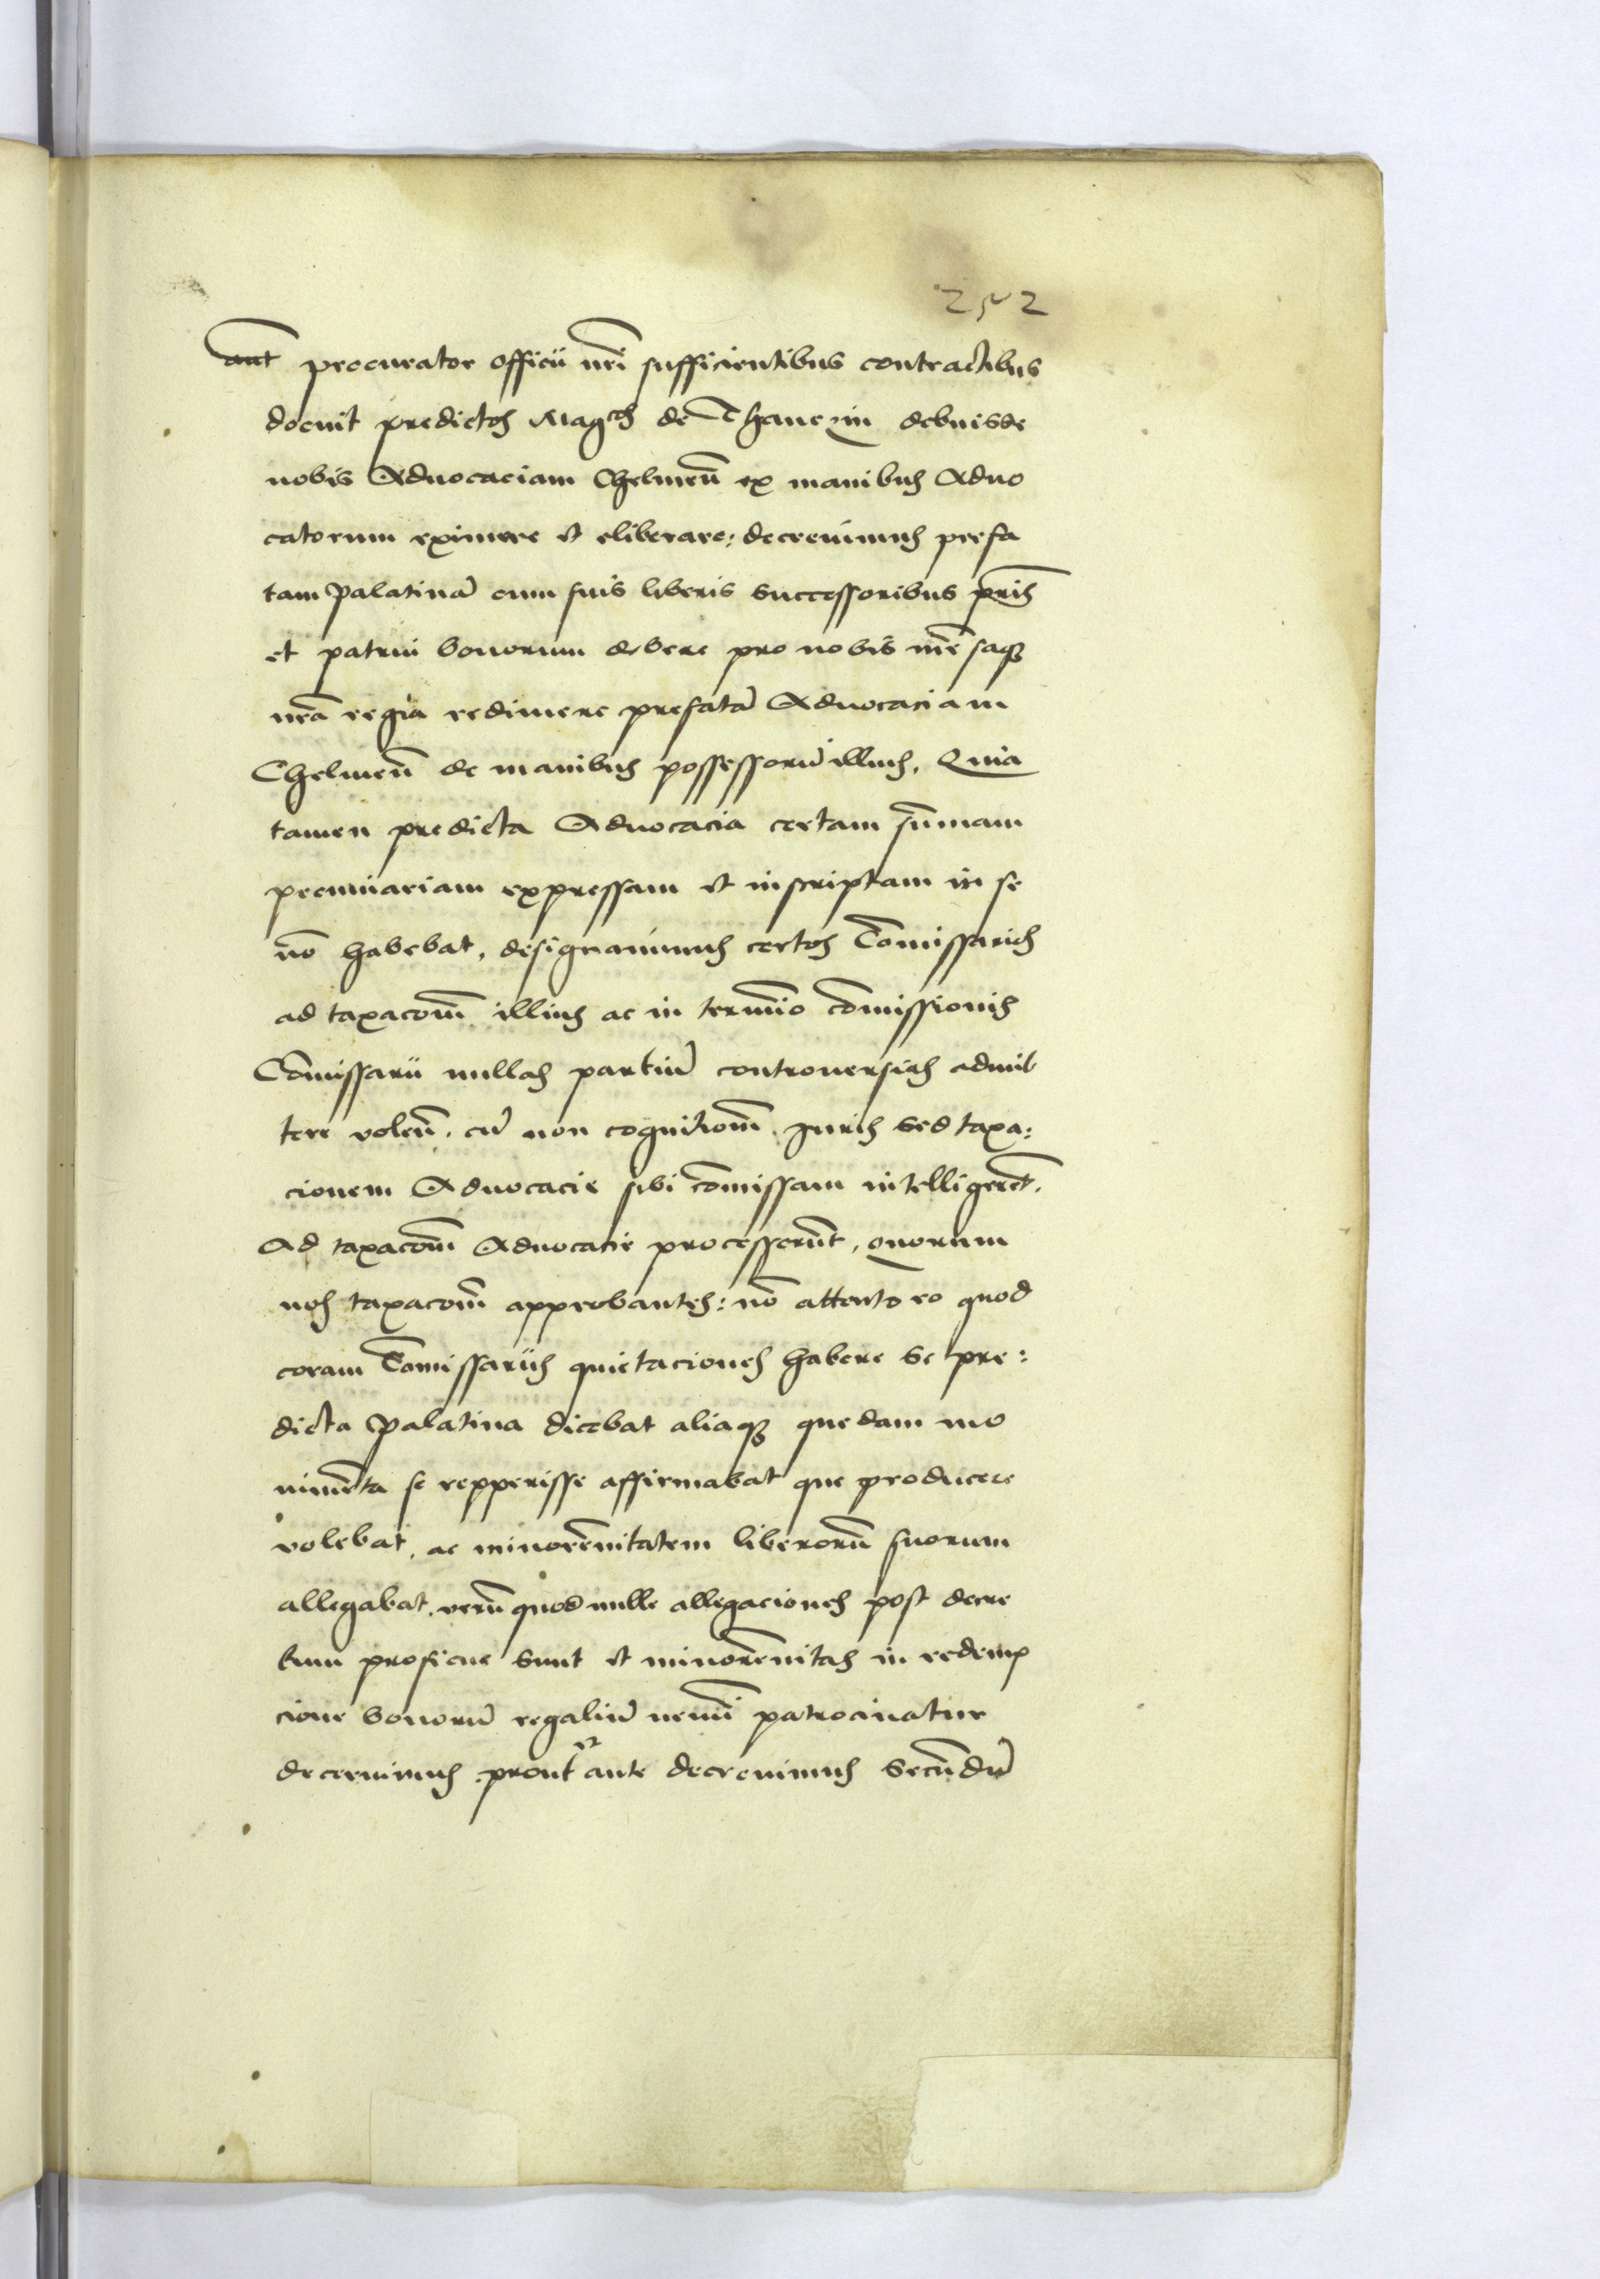 252
aut procurator officii nr̃i sufficientibus contractibus
docuit predictos Magcos de Thanczin debuisse
nobis Aduocaciam Chelmeñ ex manibus Aduo
catorum eximere et eliberare: decreuimus prefa
tam Palatinã cum suis liberis successoribus pr̃is
et patrui bonorum debere pro nobis mẽsaq3
nr̃a regia redimere prefatã Aduocaciam
Chelmeñ de manibus possessorũ illius. Quia
tamen predicta Aduocacia certam sũmam
pecuniariam expressam et inscriptam in se
nõ habebat, designauimus certos Cõmissarios
ad taxacõm illius ac in termĩo cõmissionis
Cõmissarii nullas partiũ controuersias admit
tere voleñ. cũ non cognitionẽ Juris sed taxa:
cionem Aduocacie sibi cõmissam intelligerẽt.
Ad taxacõm Aduocacie processerũt, quorum
nos taxacõm approbantes: nõ attento eo quod
coram Cõmissariis quietaciones habere se pre:
dicta Palatina dicebat aliaq3 quedam mo
nimẽta se repperisse affirmabat que producere
volebat, ac minorẽnitatem liberorũ suorum
allegabat. verũ quod nulle allegaciones post decre
tum proficue sunt et minorẽnitas in redemp
cione bonorũ regaliũ nemĩ patrocinatur
decernimus prout et ante decreuimus Secũdũ